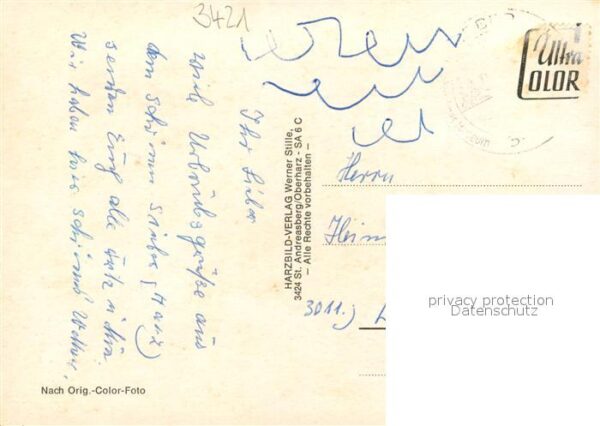 3421
Ultra
COLOR
Ihr Lieben
viele Urlaubsgrüße aus
dem schönen (Harz)
senden Euch alle
Wir haben hier schönes Wetter,
HARZBILD-VERLAG Werner Stille,
3424 St. Andreasberg/Oberharz - SA 6 C
– Alle Rechte vorbehalten –
Herrn
Hein
3011
privacy protection
Datenschutz
Nach Orig.-Color-Foto